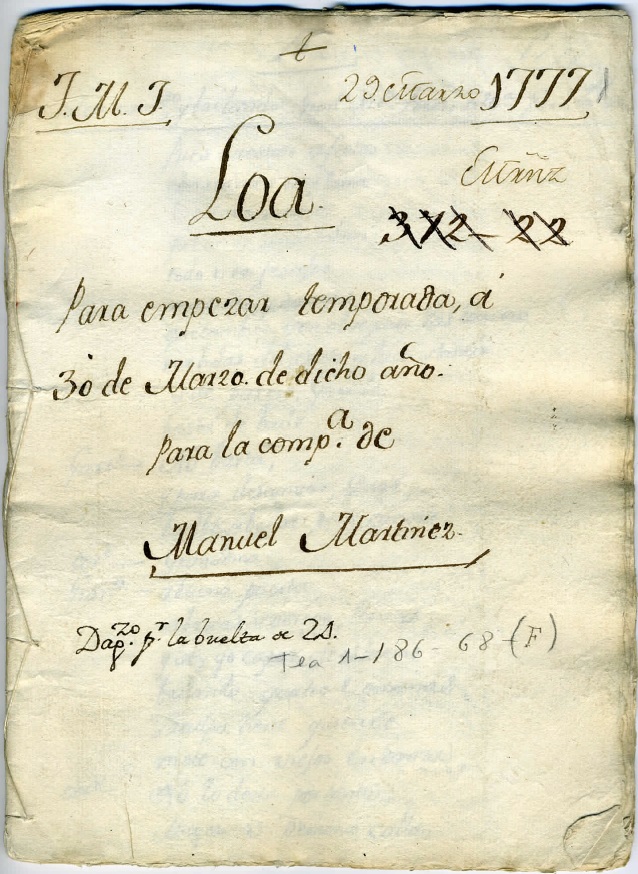 +
J. M. J. 29 Marzo 1777
Loa.
312-22
Para empezar temporada, á
30 de Marzo. de dicho año.
Para la comp.ª de
Manuel Martinez.
la buelta de
Tea 1-186-68 (F)